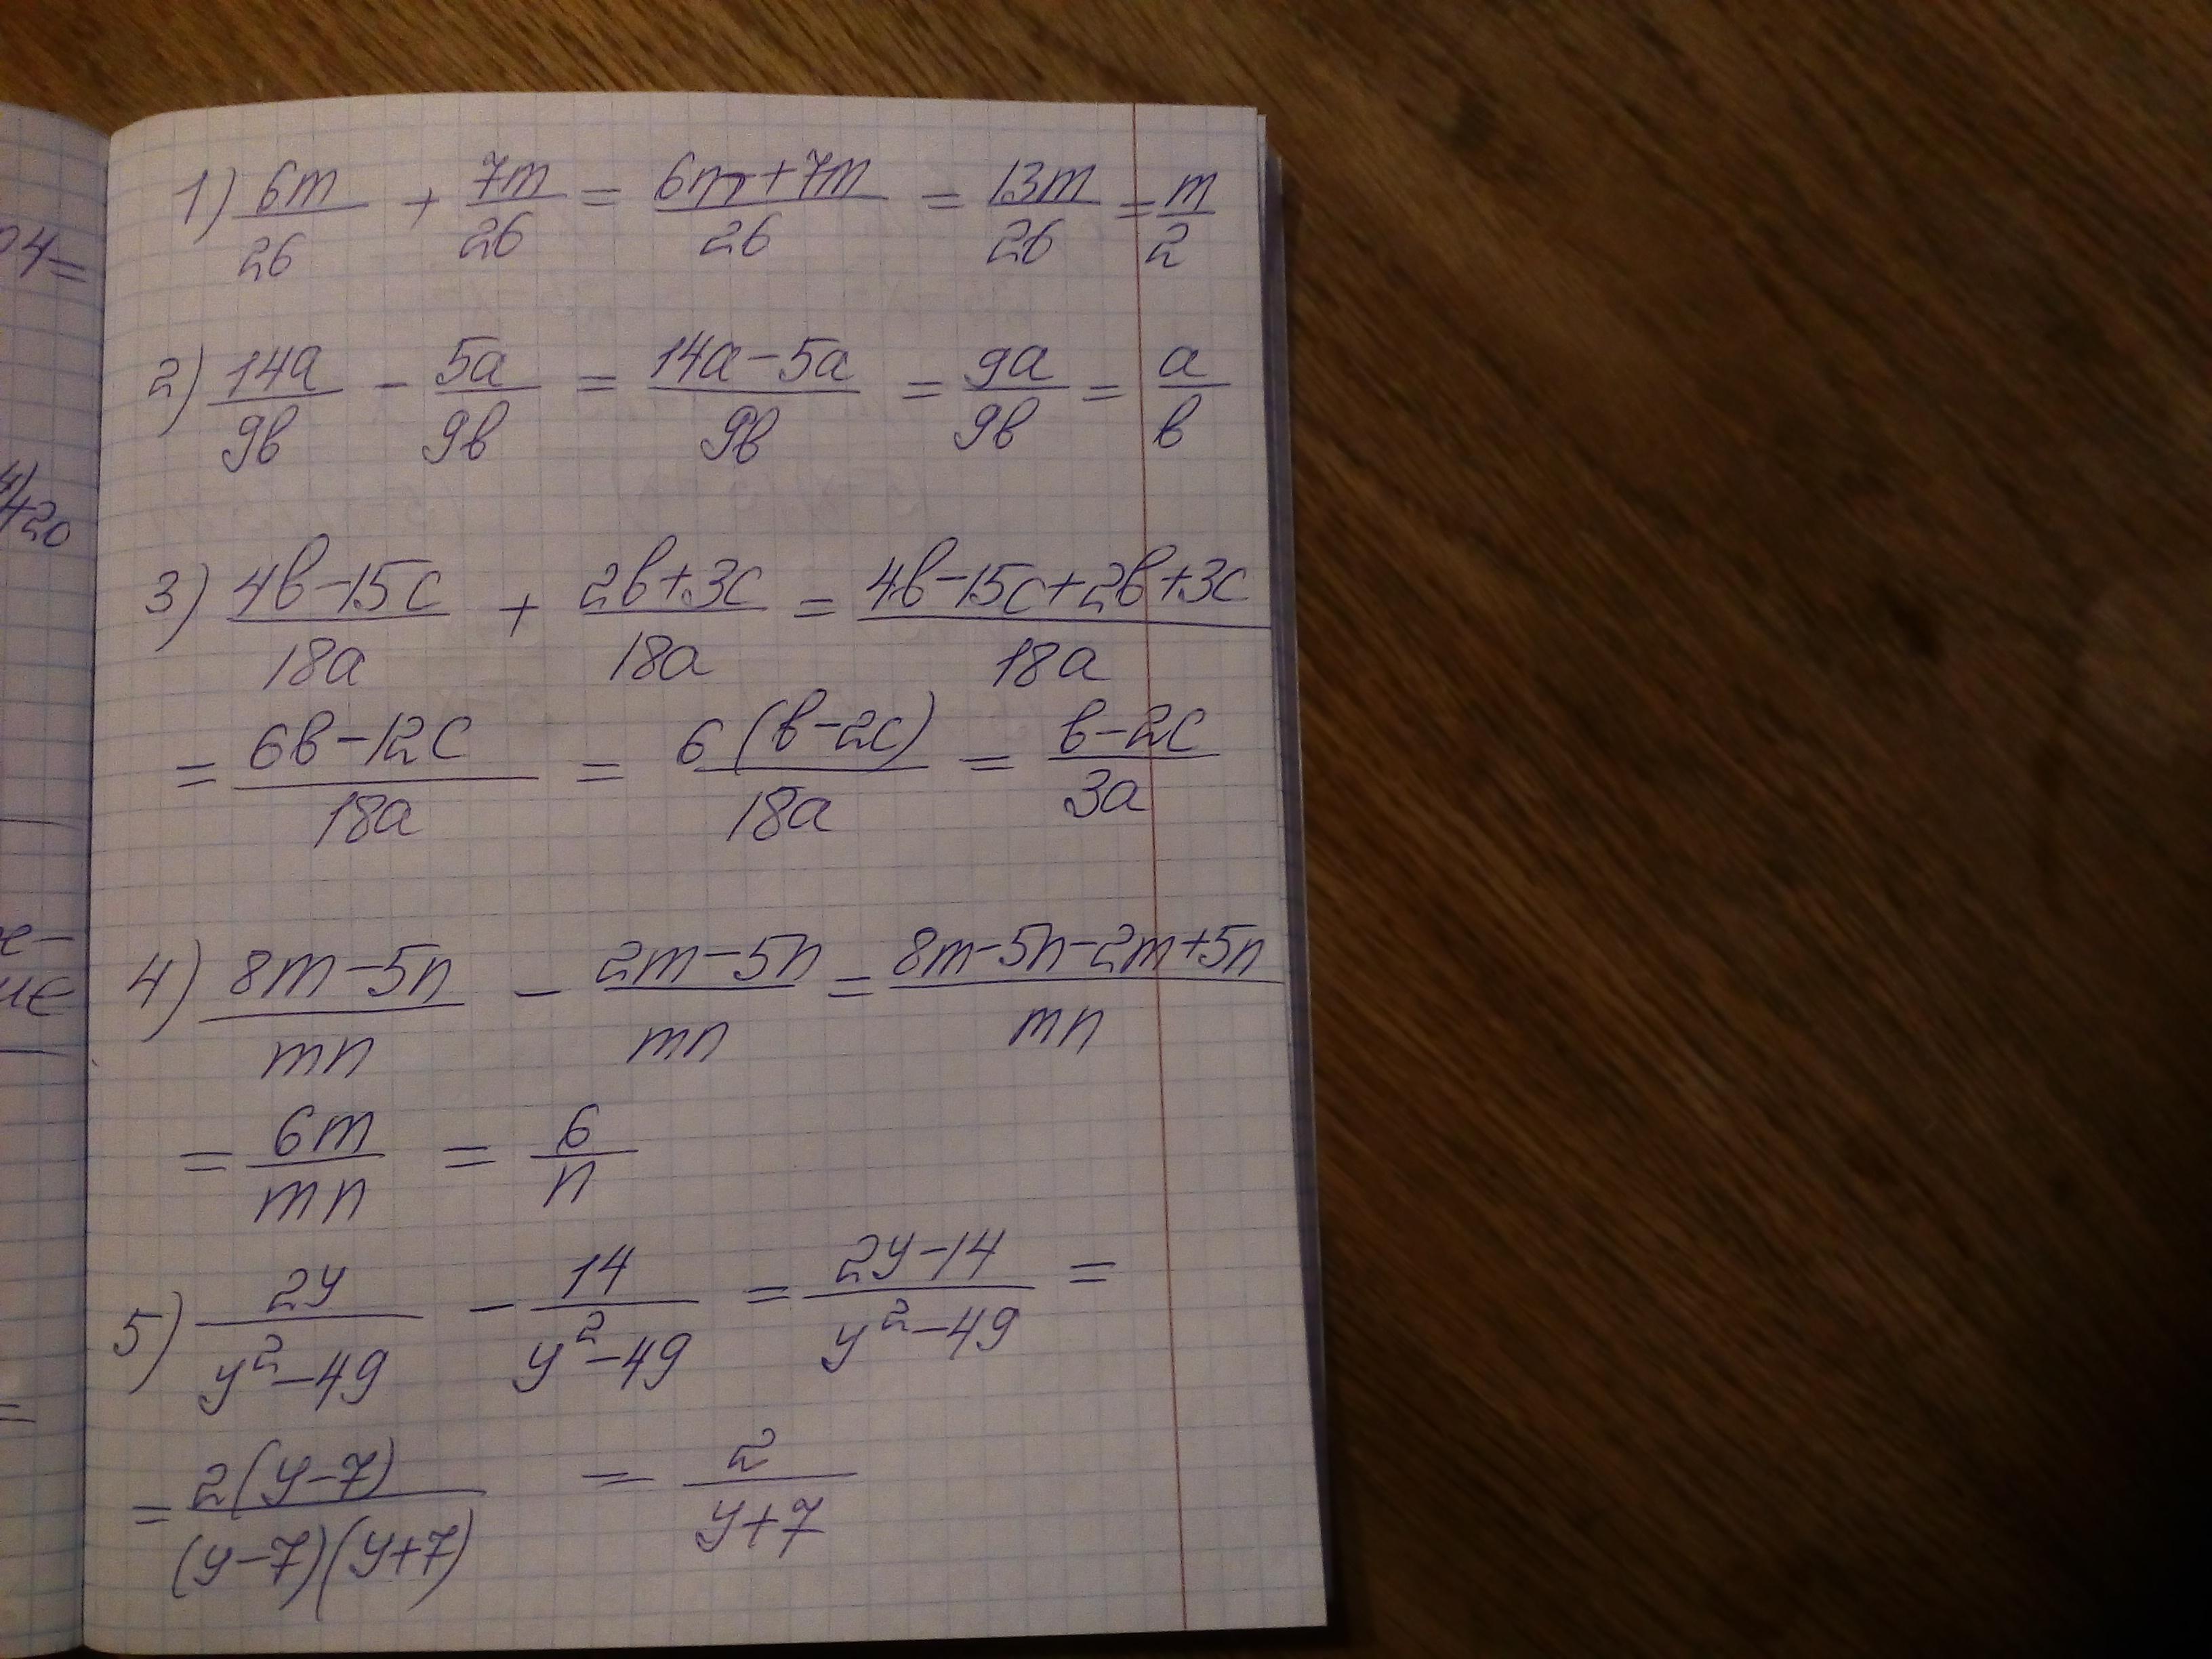 04=
4/420
1) 6m/26 + 7m/26 = (6m+7m)/26 = 13m/26 = m/2
2) 14a/9b - 5a/9b = (14a-5a)/9b = 9a/9b = a/b
3) (4b-15c)/18a + (2b+3c)/18a = (4b-15c+2b+3c)/18a
= (6b-12c)/18a = 6(b-2c)/18a = (b-2c)/3a
4) (8m-5n)/mn - (2m-5n)/mn = (8m-5n-2m+5n)/mn
= 6m/mn = 6/n
5) 2y/(y²-49) - 14/(y²-49) = (2y-14)/(y²-49) =
= 2(y-7)/((y-7)(y+7)) = 2/(y+7)